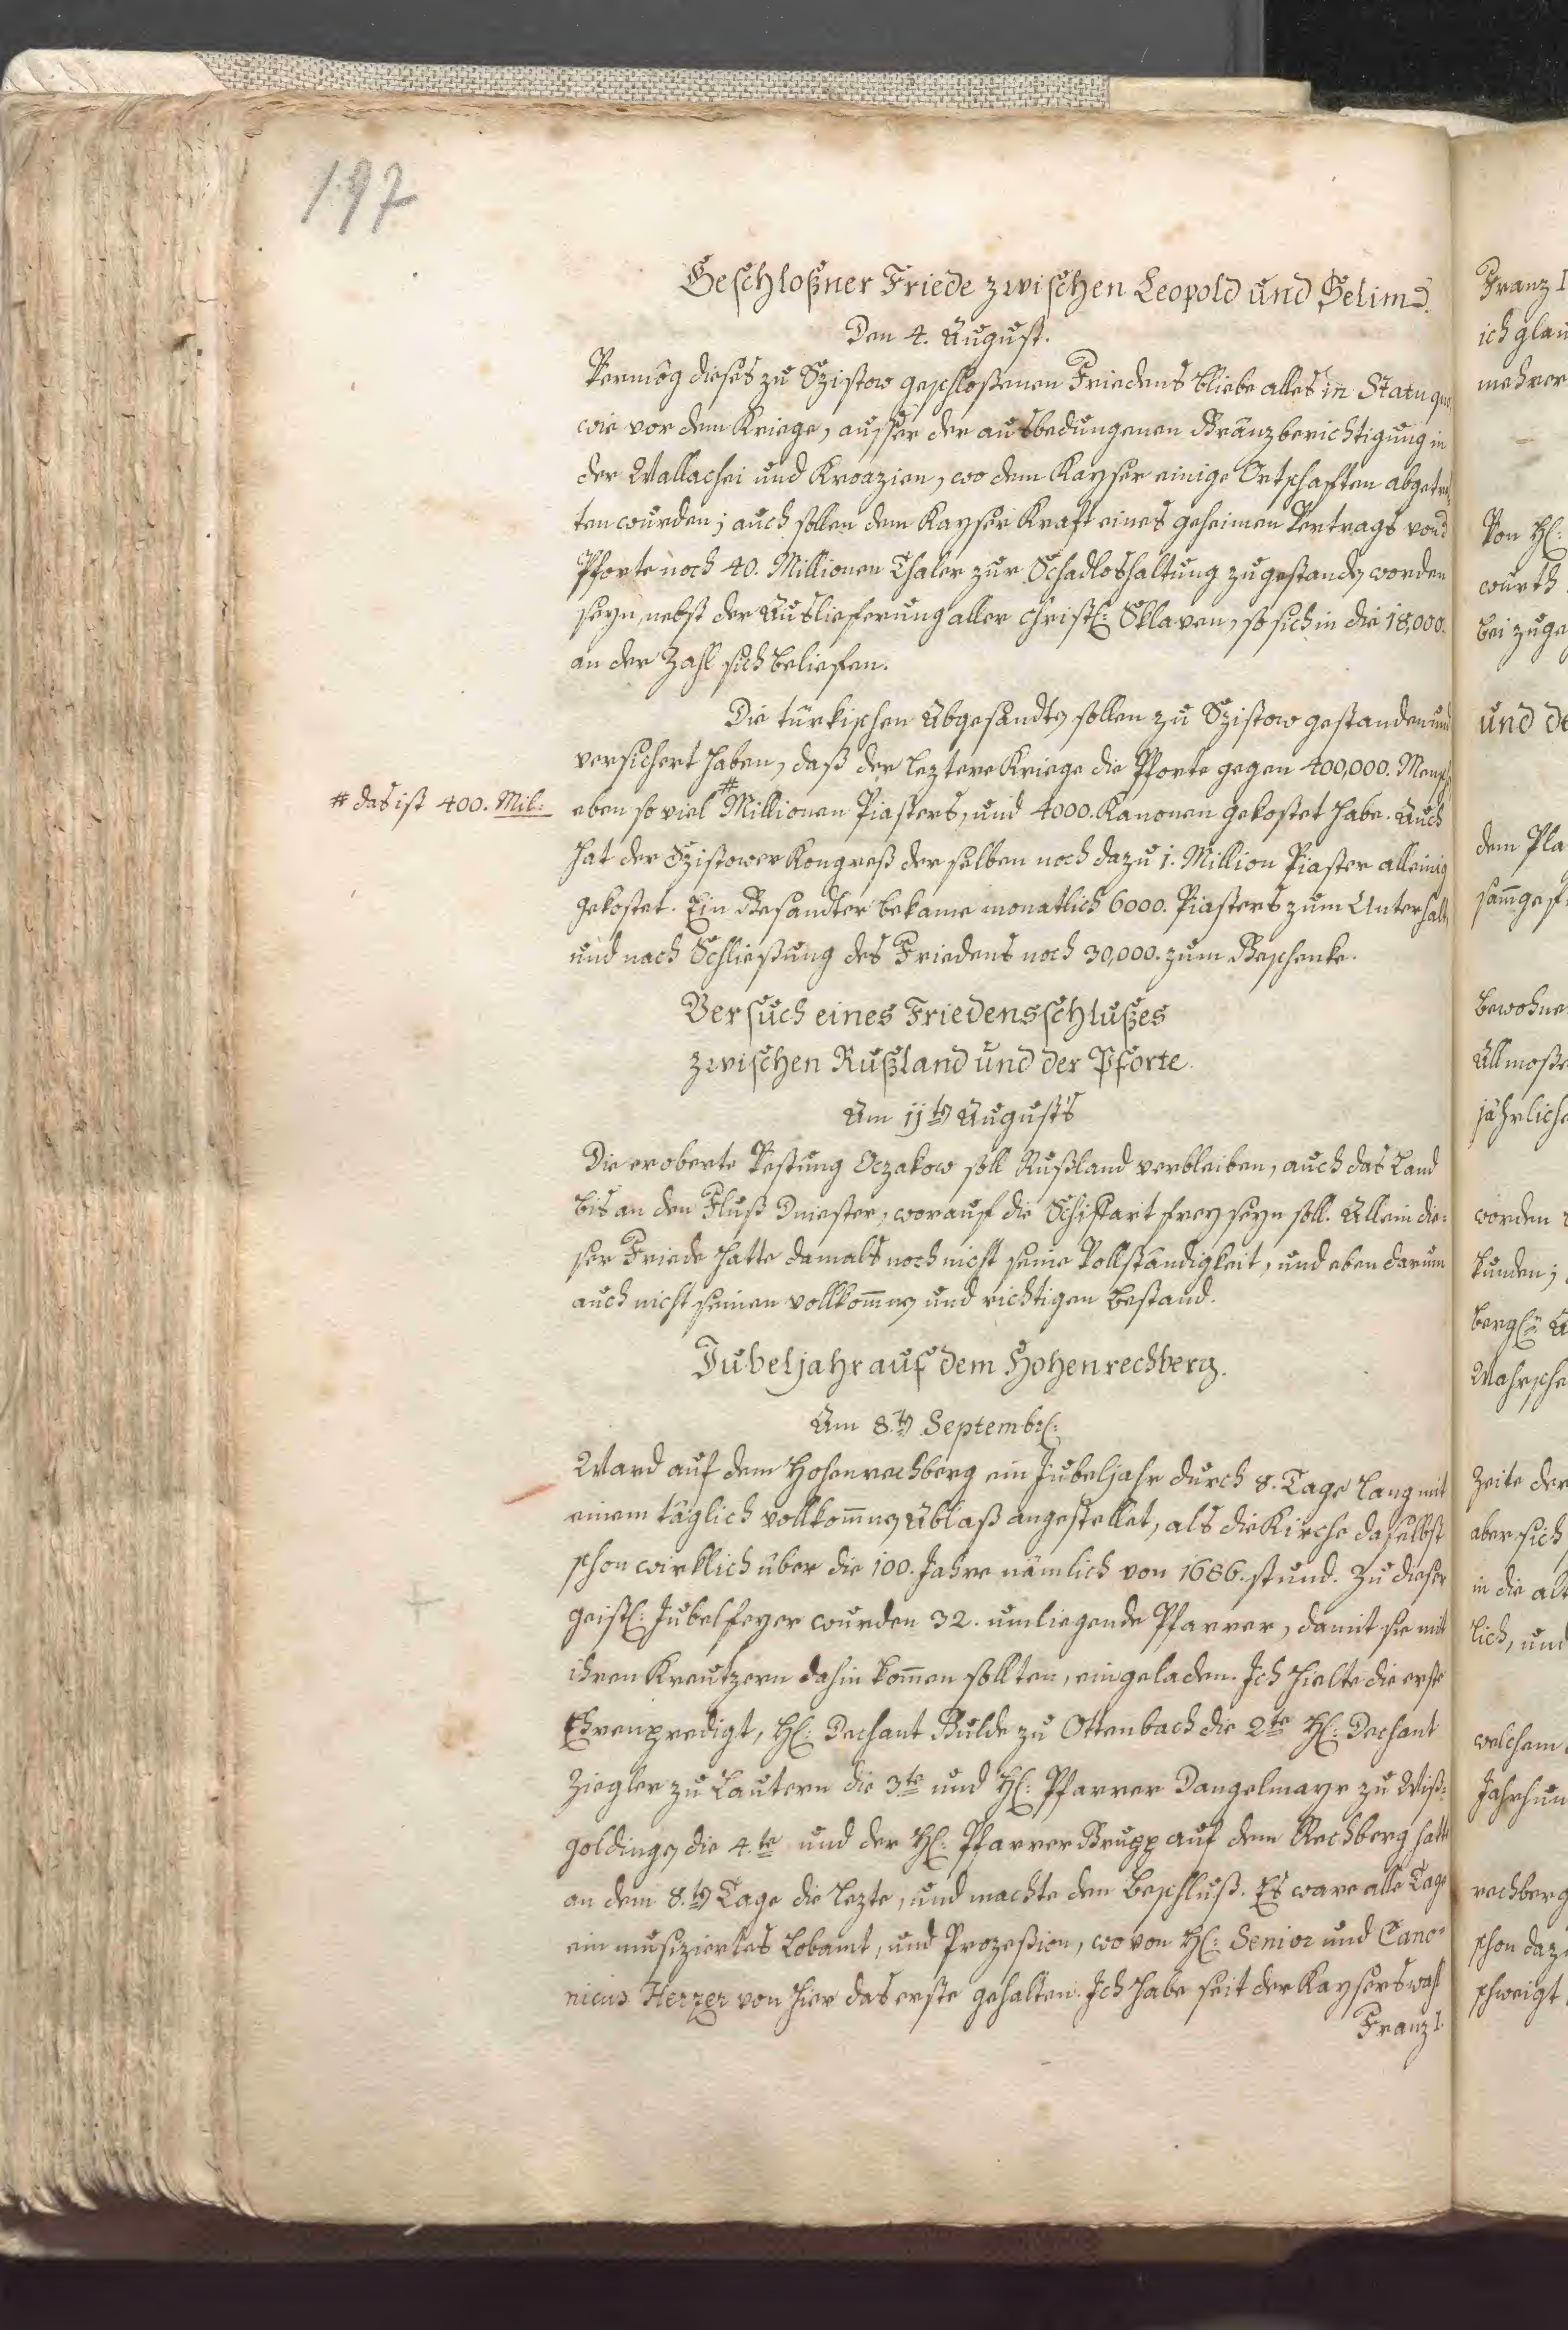 197
Geschloßner Friede zwischen Leopold und Selim.
Den 4. August.
Vermög dieses zu Szistow geschloßenen Friedens bliebe alles in Statu quo
wie vor dem Kriege, ausser der ausbedungenen Gränzberichtigung in
der Wallachei und Kroazien, wo dem Kayser einige Ortschafften abgetret-
ten wurden; auch sollen dem Kayser Kraft eines geheimen Vertrags von d
Pforte noch 40. Millionen Thaler zur Schadloshaltung zugestanden worden
seyn, nebst der Auslieferung aller christl: Sklaven, so sich in die 18,000.
an der Zahl sich beliefen.
Die türkischen Abgesandten sollen zu Szistow gestanden und
versichert haben, daß der leztere Kriege die Pforte gegen 400,000. Mensch
# das ist 400. Mil:
eben so viel # Millionen Piasters, und 4000. Kanonen gekostet habe. Auch
hat der Szistower Kongreß derselben noch dazu 1. Million Piaster alleinig
gekostet. Ein Gesandter bekame monatlich 6000. Piasters zum Unterhalt,
und nach Schließung des Friedens noch 30,000. zum Geschenke.
Versuch eines Friedensschlußes
zwischen Rußland und der Pforte.
Am 11ten Augusts
Die eroberte Vestung Oczakow soll Rußland verbleiben, auch das Land
bis an den Fluß Dniester, worauf die Schiffart frey seyn soll. Allein die-
ser Friede hatte damals noch nicht seine Vollständigkeit, und eben darum
auch nicht seinen vollkommnen und richtigen Bestand.
Jubeljahr auf dem Hohenrechberg.
Am 8.ten Septembr:
Ward auf dem Hohenrechberg ein Jubeljahr durch 8. Tage lang mit
einem täglich vollkommnen Ablaß angestellet, als die Kirche daselbst
schon wirklich über die 100. Jahre nämlich von 1686. stund. Zu dieser
geistl: Jubelfeyer wurden 32. umliegende Pfarrer, damit sie mit
ihren Kreutzern dahin kommen sollten, eingeladen. Ich hielte die erste
Ehrenpredigt, H: Dechant Bulde zu Ottenbach die 2te H: Dechant
Ziegler zu Lautern die 3te und H: Pfarrer Dangelmayr zu Wiß-
goldingen die 4.te und der H: Pfarrer Grupp auf dem Rechberg hatte
an dem 8.ten Tage die lezte, und machte den Beschluß. Es ware alle Tage
ein musiziertes Lobamt, und Prozeßion, wovon H: Senior und Cano-
nicus Herzer von hier das erste gehalten. Ich habe seit der Kayserswahl
Franz I.
Franz I
ich glau
mehrer
Von H:
wurth
bei zuge
und de
dem Pla
samgest
bewohne
Allmoße
jährliche
worden
kunden;
Wahrsche
Zeite der
aber sich
in die alt
lich, und
welchem
Jahrhun
rechberg
schon daz
schweigt